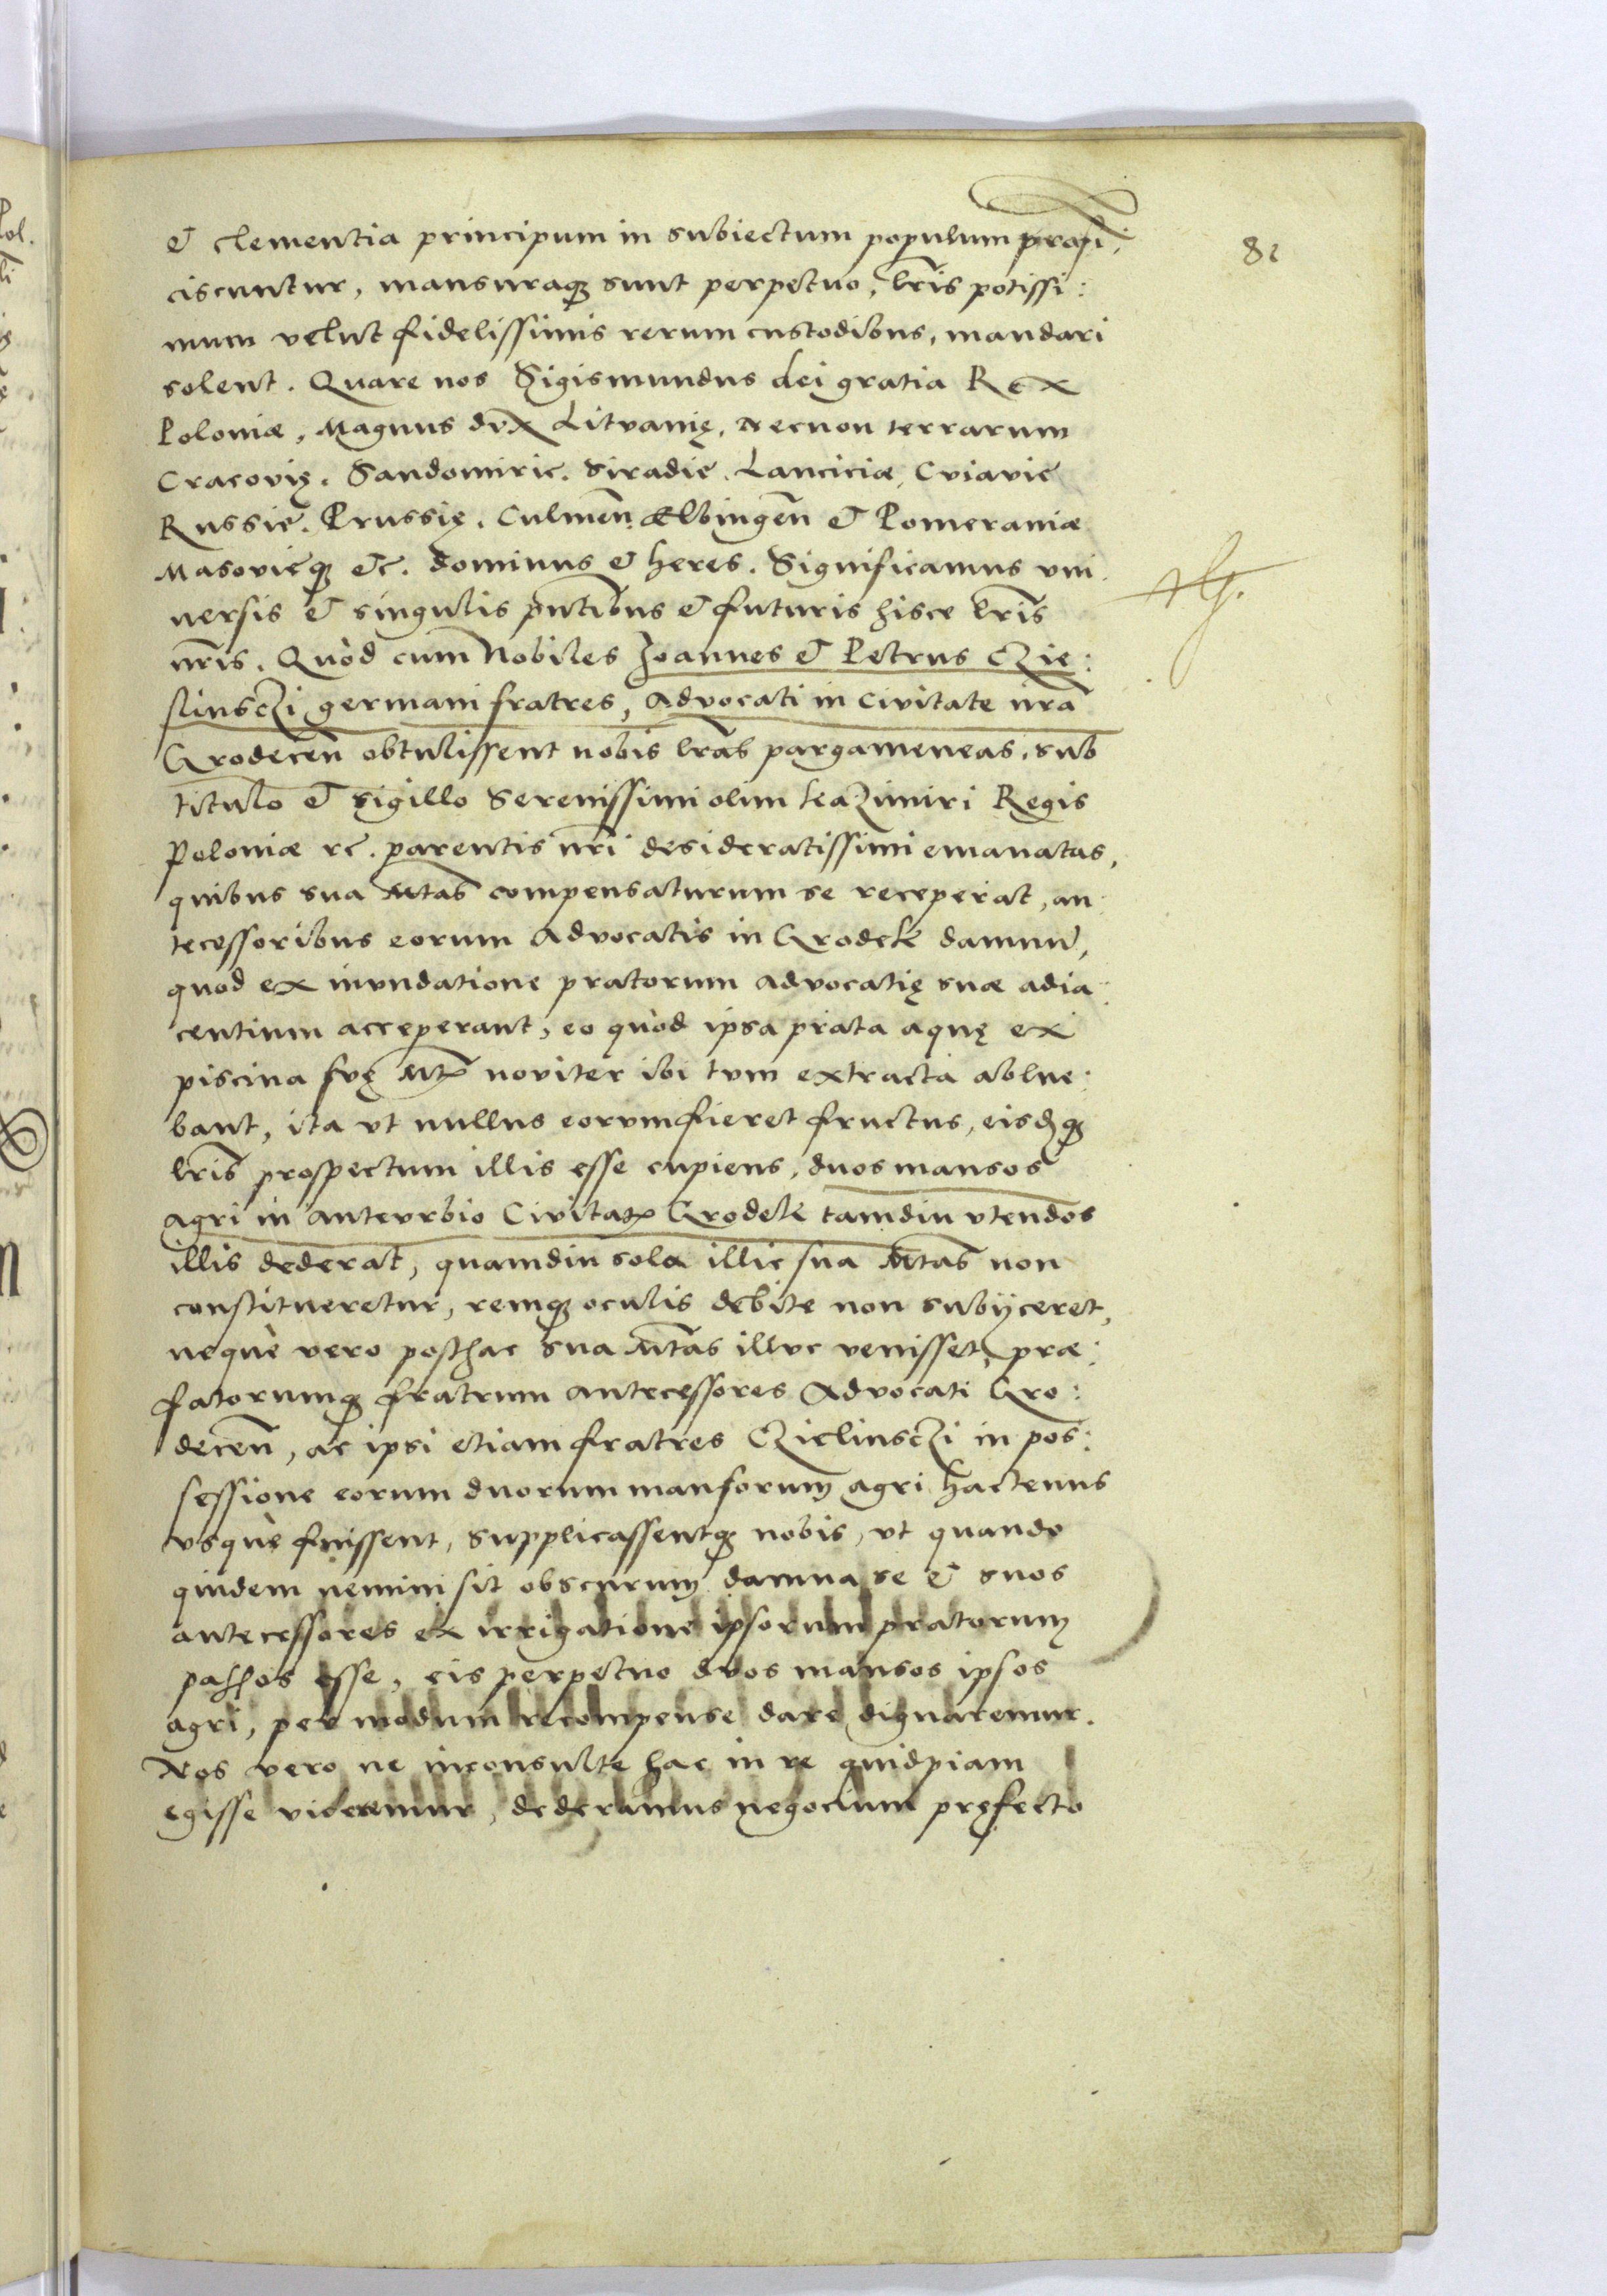 82
& clementia principum in subiectum populum profi:
ciscuntur, mansuraq₃ sunt perpetuo, lr̃is potissi:
mum velut fidelissimis rerum custodibus, mandari
solent. Quare nos Sigismundus dei gratia Rex
Poloniæ, Magnus dvx Litvanię, Necnon terrarum
Cracovię. Sandomirie. Siradię. Lanciciæ, Cviavie
Russię. Prussię. Culmeñ. Ælbingeñ & Pomeraniæ
Masovieq₃ &c. dominus & heres. Significamus vni
uersis & singulis pñtibus & futuris hisce lr̃is
nr̃is. Quòd cum Nobiles Joannes & Petrus Czie:
linsczi germani fratres, Advocati in Civitate nr̃a
Grodeceñ obtulissent nobis lr̃as pargameneas, sub
titulo & sigillo Serenissimi olim kazimiri Regis
Poloniæ rc. parentis nr̃i desideratissimi emanatas,
quibus sua Mtas compensaturum se receperat, an:
tecessoribus eorum Advocatis in Grodek damnũ,
quod ex invndatione pratorum advocatię suæ adia:
centium acceperant, eo quòd ipsa prata aquę ex
piscina svę Mt̃ noviter ibi tvm extracta ablue:
bant, ita vt nullus eorvm fieret fructus, eisdq₃
lr̃is prospectum illis esse cupiens, duos mansos
agri in antevrbio Civitat Grodek tamdiu vtendos
illis dederat, quamdiu sola illic sua Mtas non
constitveretur, remq₃ oculis debite non subijceret,
neque vero posthac sua Mtas illvc venisset, præ:
fatorumq₃ fratrum antecessores Advocati Gro:
deceñ, ac ipsi etiam fratres Czielinsczi in pos:
sessione eorum duorum mansorum agri hactenus
vsquè fuissent, supplicassentq₃ nobis, vt quando
quidem nemini sit obscurum damna se & suos
antecessores ex irrigatione ipsorum pratorum
passos esse, eis perpetuo dvos mansos ipsos
agri, per modum recompense dare dignaremur.
Nos vero ne inconsulte hac in re quidpiam
egisse videremur, dederamus negocium pręfecto